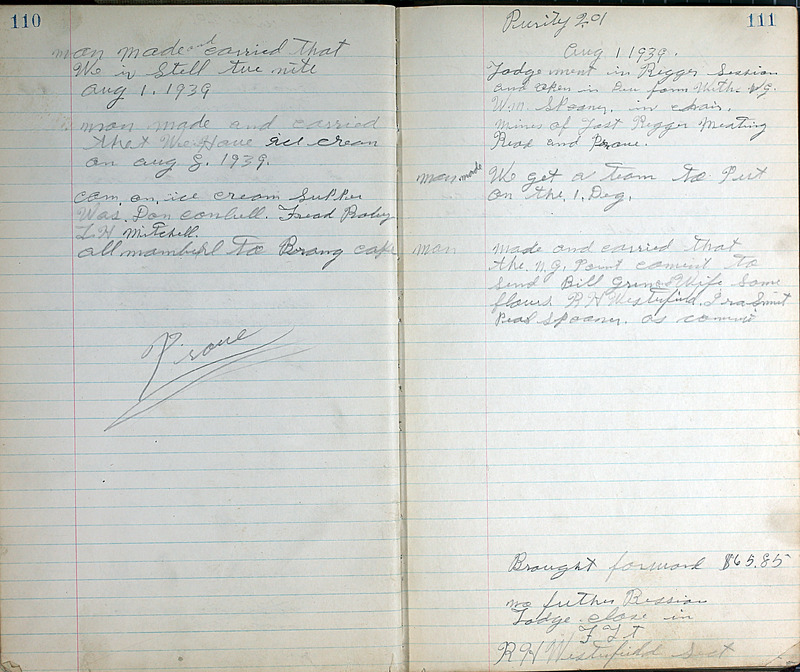 110
man made and carried that
We in Stell tue nite
aug 1. 1939
man made and carried
that We Have ice crean
on aug 8. 1939.
com. on. ice cream Supper
Was. Don
L H Mitchell.
all to Brang cake
Prove
Purity 201
111
Aug 1 1939.
Lodge ment in Regger Session
and oken in Due form With. N.G.
W.m. Spooner. in chair.
mines of Last Regger Meating
Read and Prove.
man made We get a team to Put
on the. 1. Deg.
man made and carried that
the. N.G. Point comint to
send Bill Wife Some
flours R H Westerfield. Ira
Spooner. as comint
Brought forward $65.85
no futher Bession
Lodge close in
F L T
R H Westerfield Sect